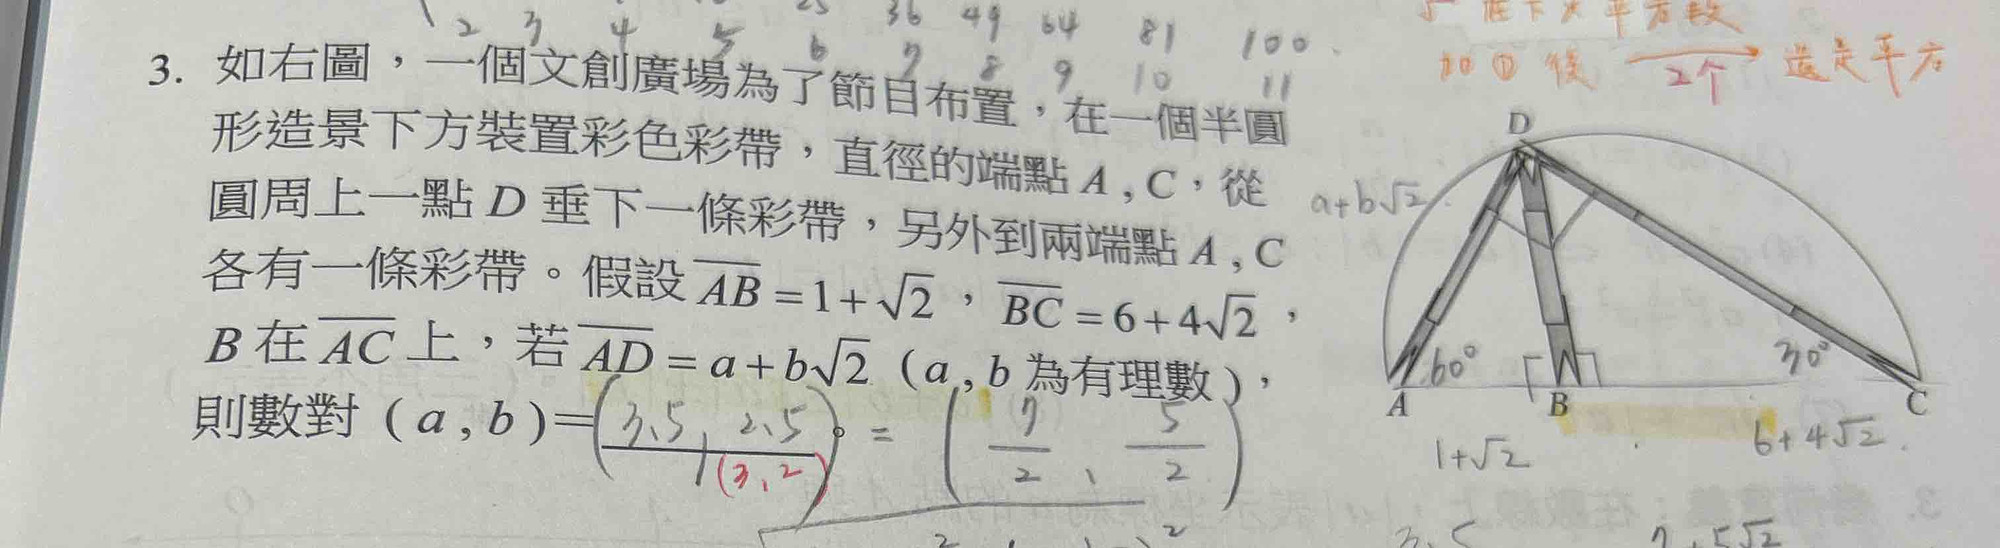 2 3 4 5 25 36 49 64 81 100
6 7 8 9 10 11
加①後 2个 還是平方
3. 如右圖，一個文創廣場為了節目布置，在一個半圓
形造景下方裝置彩色彩帶，直徑的端點 A , C，從
圓周上一點 D 垂下一條彩帶，另外到兩端點 A , C
各有一條彩帶。假設 \overline{AB} = 1+√2，\overline{BC} = 6+4√2，
B 在 \overline{AC} 上，若 \overline{AD} = a+b√2（a , b 為有理數），
則數對 ( a , b )=(3.5, 2.5)。= (7/2, 5/2)
(3,2)
D
a+b√2
60°
30°
A B C
1+√2
6+4√2